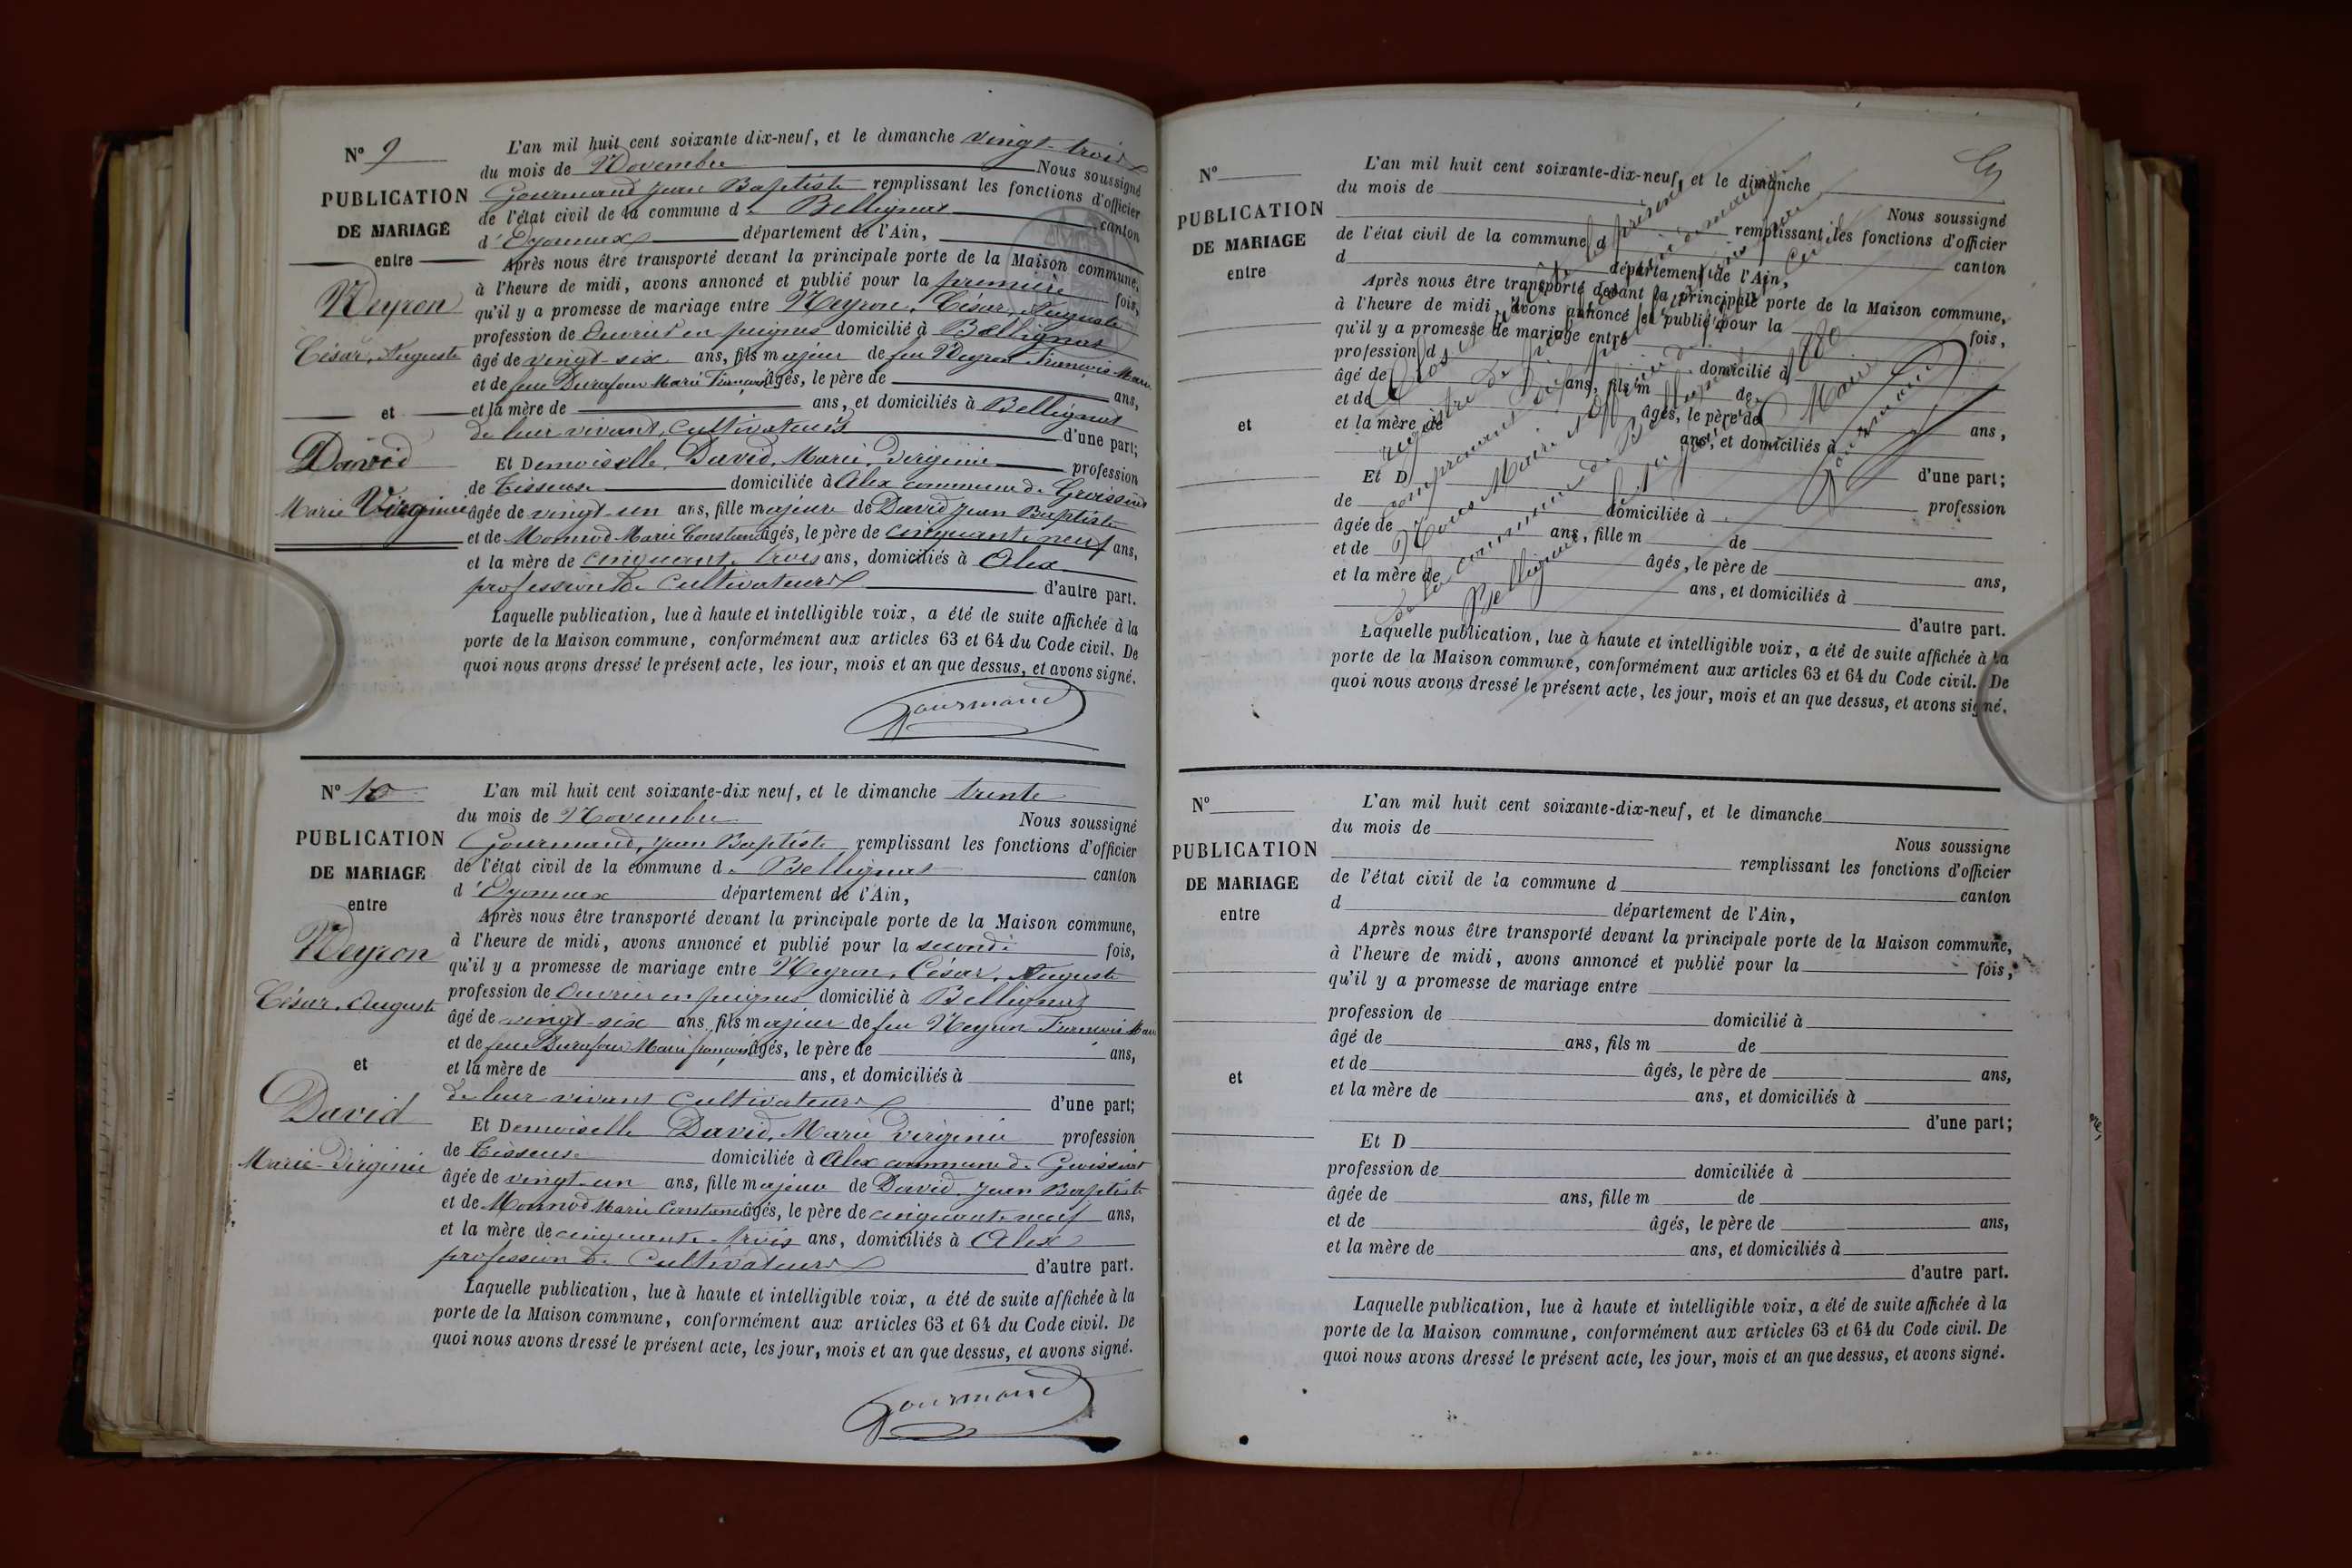 N° 9
PUBLICATION
DE MARIAGE
entre
Neyron
César, Auguste
et
David
Marie Virginie
L'an mil huit cent soixante dix-neuf, et le dimanche vingt-trois
du mois de Novembre Nous soussigné
Gourmand Jean Baptiste remplissant les fonctions d'officier
de l'état civil de la commune de Bellignat canton
d'Oyonnax département de l'Ain,
Après nous être transporté devant la principale porte de la Maison commune,
à l'heure de midi, avons annoncé et publié pour la première fois,
qu'il y a promesse de mariage entre Neyron, César, Auguste
profession de Ouvrier en peignes domicilié à Bellignat
âgé de vingt-six ans, fils majeur de feu Neyron François Marie
et de feue Durafour Marie Françoise âgés, le père de ans,
et la mère de ans, et domiciliés à Bellignat
de leur vivant, cultivateurs d'une part;
Et Demoiselle, David, Marie, Virginie profession
de Tisseuse domiciliée à Alex commune de Groissiat
âgée de vingt-un ans, fille majeure de David Jean Baptiste
et de Monnod Marie Constance âgés, le père de cinquante-neuf ans,
et la mère de cinquante-trois ans, domiciliés à Alex
profession de cultivateurs d'autre part.
Laquelle publication, lue à haute et intelligible voix, a été de suite affichée à la
porte de la Maison commune, conformément aux articles 63 et 64 du Code civil. De
quoi nous avons dressé le présent acte, les jour, mois et an que dessus, et avons signé.
Gourmand
N° 10
PUBLICATION
DE MARIAGE
entre
Neyron
César, Auguste
et
David
Marie-Virginie
L'an mil huit cent soixante-dix neuf, et le dimanche trente
du mois de Novembre Nous soussigné
Gourmand, Jean Baptiste remplissant les fonctions d'officier
de l'état civil de la commune de Bellignat canton
d'Oyonnax département de l'Ain,
Après nous être transporté devant la principale porte de la Maison commune,
à l'heure de midi, avons annoncé et publié pour la seconde fois,
qu'il y a promesse de mariage entre Neyron, César, Auguste
profession de Ouvrier en peignes domicilié à Bellignat
âgé de vingt-six ans, fils majeur de feu Neyron François Marie
et de feue Durafour Marie françoise âgés, le père de ans,
et la mère de ans, et domiciliés à
de leur vivant cultivateurs d'une part;
Et Demoiselle David, Marie Virginie profession
de Tisseuse domiciliée à Alex commune de Groissiat
âgée de vingt-un ans, fille majeure de David Jean Baptiste
et de Monnod Marie Constance âgés, le père de cinquante-neuf ans,
et la mère de cinquante-trois ans, domiciliés à Alex
profession de cultivateurs d'autre part.
Laquelle publication, lue à haute et intelligible voix, a été de suite affichée à la
porte de la Maison commune, conformément aux articles 63 et 64 du Code civil. De
quoi nous avons dressé le présent acte, les jour, mois et an que dessus, et avons signé.
Gourmand
N°
PUBLICATION
DE MARIAGE
entre
et
L'an mil huit cent soixante-dix-neuf, et le dimanche
du mois de Nous soussigné
remplissant les fonctions d'officier
de l'état civil de la commune d canton
d département de l'Ain,
Après nous être transporté devant la principale porte de la Maison commune,
à l'heure de midi, avons annoncé et publié pour la fois,
qu'il y a promesse de mariage entre
profession d domicilié à
âgé de ans, fils m de
et de âgés, le père de ans,
et la mère de ans, et domiciliés à
d'une part;
Et D profession
de domiciliée à
âgée de ans, fille m de
et de âgés, le père de ans,
et la mère de ans, et domiciliés à
d'autre part.
Laquelle publication, lue à haute et intelligible voix, a été de suite affichée à la
porte de la Maison commune, conformément aux articles 63 et 64 du Code civil. De
quoi nous avons dressé le présent acte, les jour, mois et an que dessus, et avons signé.
Clos et le présent
registre de de mariage
comprenant dix
Nous Maire et Officier de civil
de la commune de Bellignat
Bellignat le 1880
Maire
Gourmand
N°
PUBLICATION
DE MARIAGE
entre
et
L'an mil huit cent soixante-dix-neuf, et le dimanche
du mois de Nous soussigne
remplissant les fonctions d'officier
de l'état civil de la commune d canton
d département de l'Ain,
Après nous être transporté devant la principale porte de la Maison commune,
à l'heure de midi, avons annoncé et publié pour la fois,
qu'il y a promesse de mariage entre
profession de domicilié à
âgé de ans, fils m de
et de âgés, le père de ans,
et la mère de ans, et domiciliés à
d'une part;
Et D
profession de domiciliée à
âgée de ans, fille m de
et de âgés, le père de ans,
et la mère de ans, et domiciliés à
d'autre part.
Laquelle publication, lue à haute et intelligible voix, a été de suite affichée à la
porte de la Maison commune, conformément aux articles 63 et 64 du Code civil. De
quoi nous avons dressé le présent acte, les jour, mois et an que dessus, et avons signé.